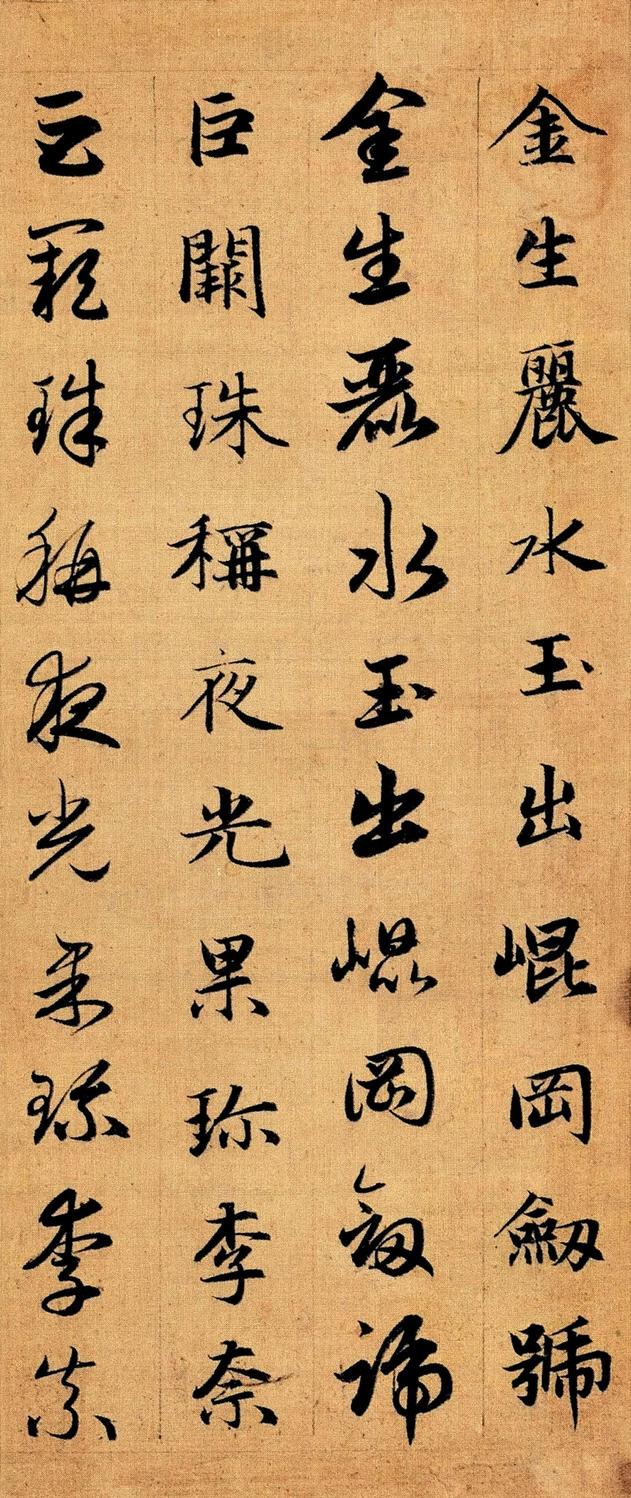 金生麗水玉出崐岡劔號
金生麗水玉出崐岡劔號
巨闕珠稱夜光果珎李柰
巨闕珠稱夜光果珎李柰